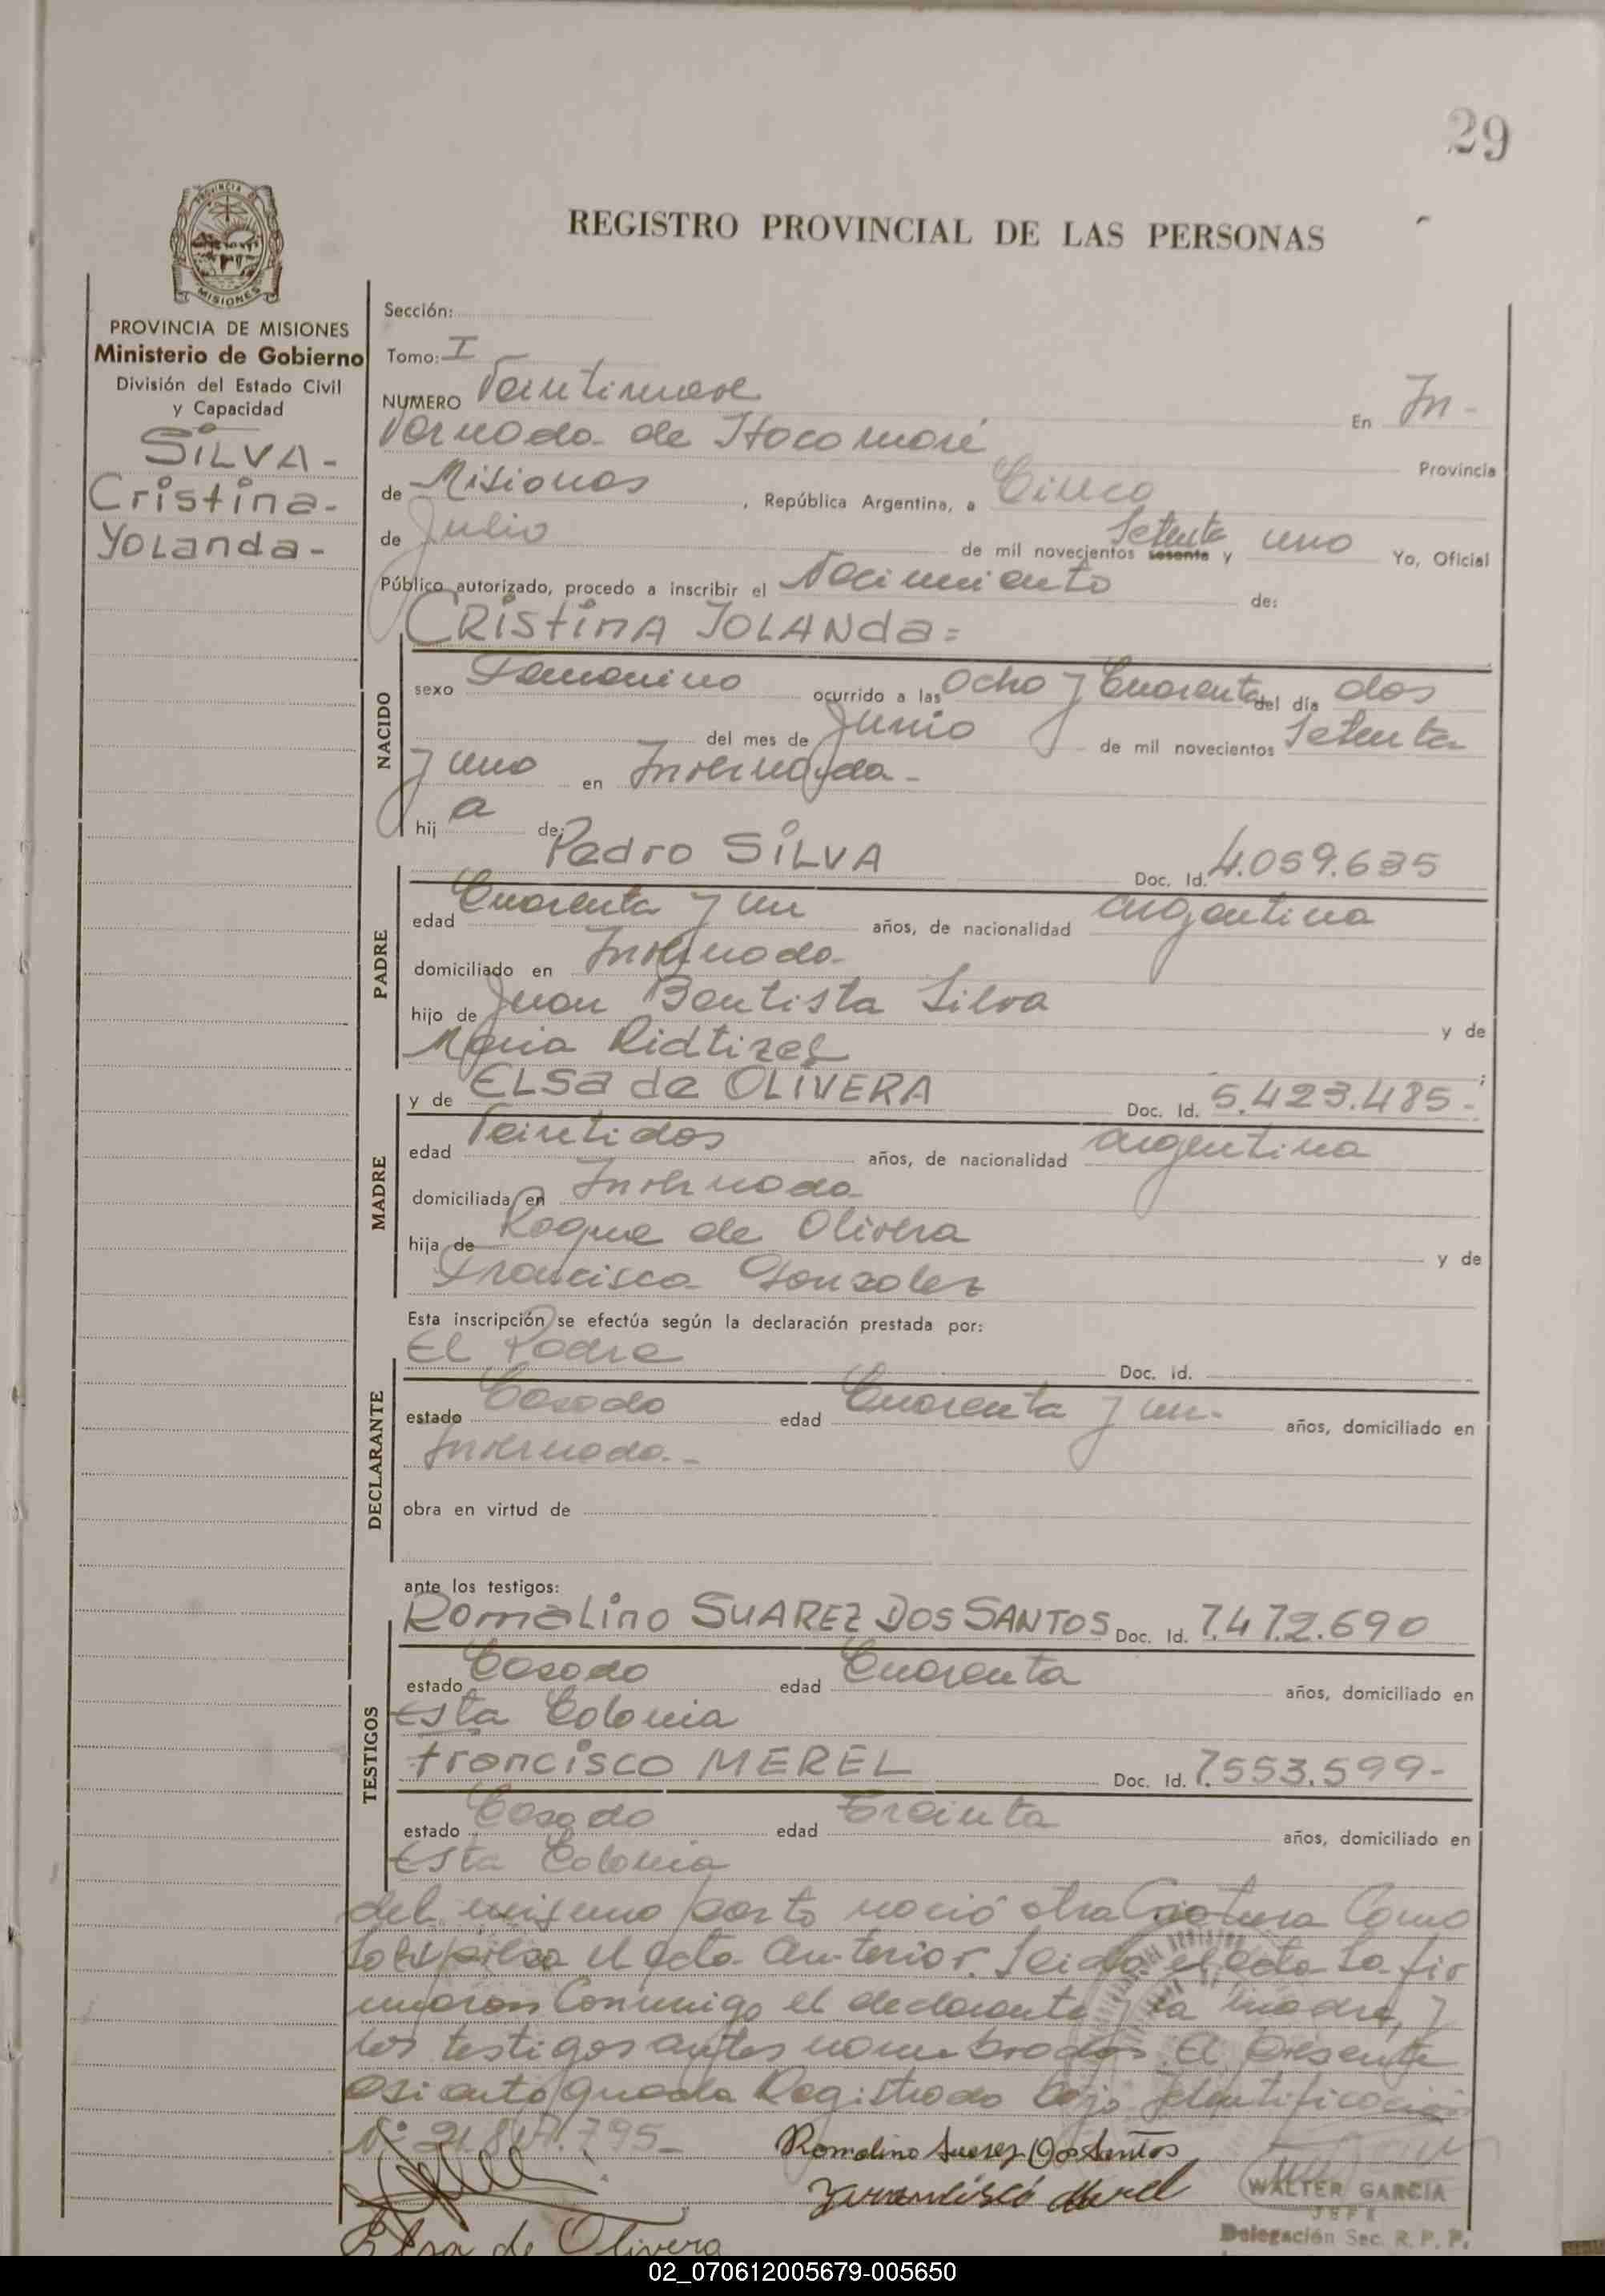 29
REGISTRO PROVINCIAL DE LAS PERSONAS
PROVINCIA DE
MISIONES
PROVINCIA DE MISIONES
Ministerio de Gobierno
División del Estado Civil
y Capacidad
SILVA-
Cristina-
Yolanda-
Sección:
Tomo: I
NUMERO Veintinueve En In-
vernada de Itacaruaré Provincia
de Misiones, República Argentina, a Cinco
de Julio de mil novecientos sesenta Setenta y uno Yo, Oficial
Público autorizado, procedo a inscribir el Nacimiento de:
CRistinA YOLANda=
NACIDO
sexo Femenino ocurrido a las Ocho y Cuarenta del día dos
del mes de Junio de mil novecientos Setenta
y uno en Invernada-
hij a de: Pedro SILVA Doc. Id. 4.059.635
PADRE
edad Cuarenta y un años, de nacionalidad argentina
domiciliado en Invernada
hijo de Juan Bautista Silva y de
Maria
y de ELSA de OLIVERA Doc. Id. 5.423.485-
MADRE
edad Veintidos años, de nacionalidad argentina
domiciliada en Invernada
hija de Roque de Olivera y de
Francisca Gonzalez
Esta inscripción se efectúa según la declaración prestada por:
El Padre Doc. id.
DECLARANTE
estado Casado edad Cuarenta y un- años, domiciliado en
Invernada.-
obra en virtud de
ante los testigos:
Romalino SUAREZ DOS SANTOS Doc. Id. 7.472.690
TESTIGOS
estado Casado edad Cuarenta años, domiciliado en
Esta Colonia
Francisco MEREL Doc. Id. 7.553.599-
estado Casado edad Treinta años, domiciliado en
Esta Colonia
del mismo parto nació otra Criatura Como
lo expresa el acta anterior. Leida el acta la fir
maron Conmigo el declarante y la madre, y
los testigos antes nombrados. El presente
asiento queda Registrado bajo Identificación
Nº
Romalino Suarez Dos Santos
Francisco Merel
WALTER GARCIA
JEFE
Delegación Sec. R. P. P.
Elsa de Olivera
02_070612005679-005650